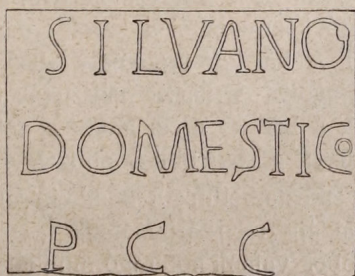 SILVANO
DOMESTICO
P C C